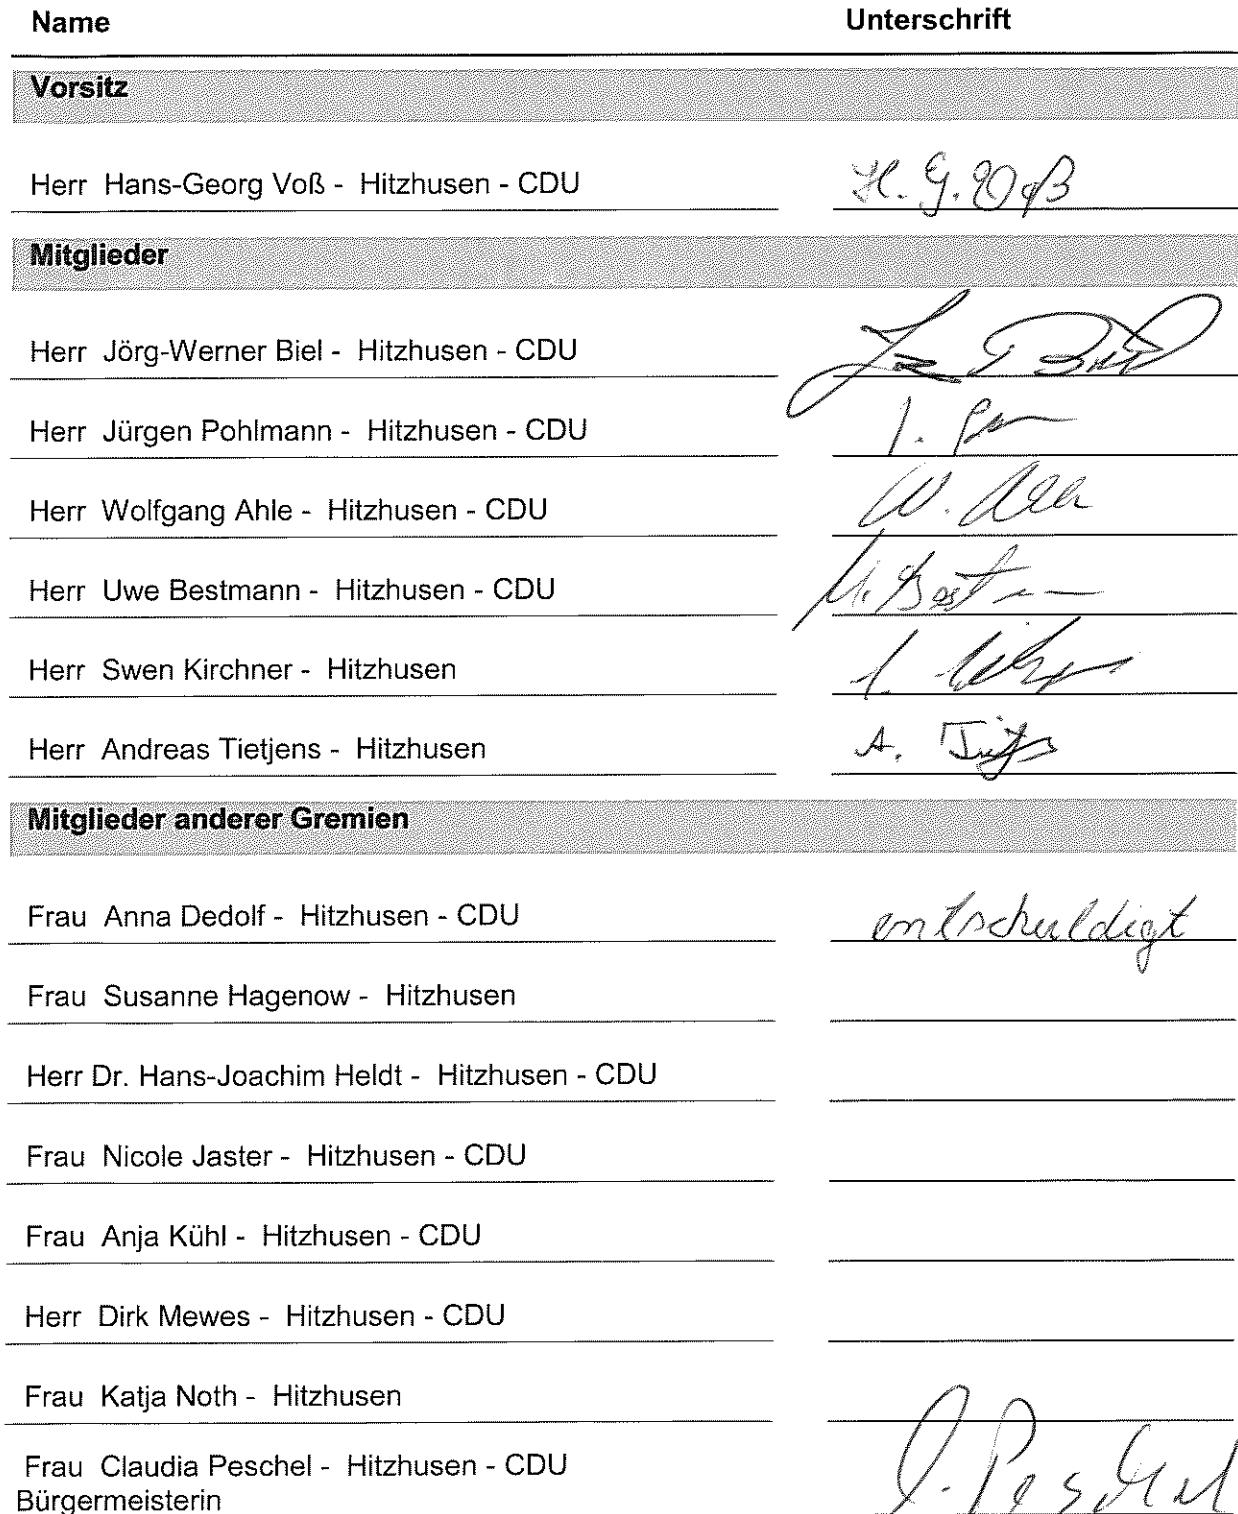 Name Unterschrift
Vorsitz
Herr Hans-Georg Voß - Hitzhusen - CDU H. G. Voß
Mitglieder
Herr Jörg-Werner Biel - Hitzhusen - CDU
Herr Jürgen Pohlmann - Hitzhusen - CDU
Herr Wolfgang Ahle - Hitzhusen - CDU W.
Herr Uwe Bestmann - Hitzhusen - CDU
Herr Swen Kirchner - Hitzhusen
Herr Andreas Tietjens - Hitzhusen A.
Mitglieder anderer Gremien
Frau Anna Dedolf - Hitzhusen - CDU entschuldigt
Frau Susanne Hagenow - Hitzhusen
Herr Dr. Hans-Joachim Heldt - Hitzhusen - CDU
Frau Nicole Jaster - Hitzhusen - CDU
Frau Anja Kühl - Hitzhusen - CDU
Herr Dirk Mewes - Hitzhusen - CDU
Frau Katja Noth - Hitzhusen
Frau Claudia Peschel - Hitzhusen - CDU C. Peschel
Bürgermeisterin